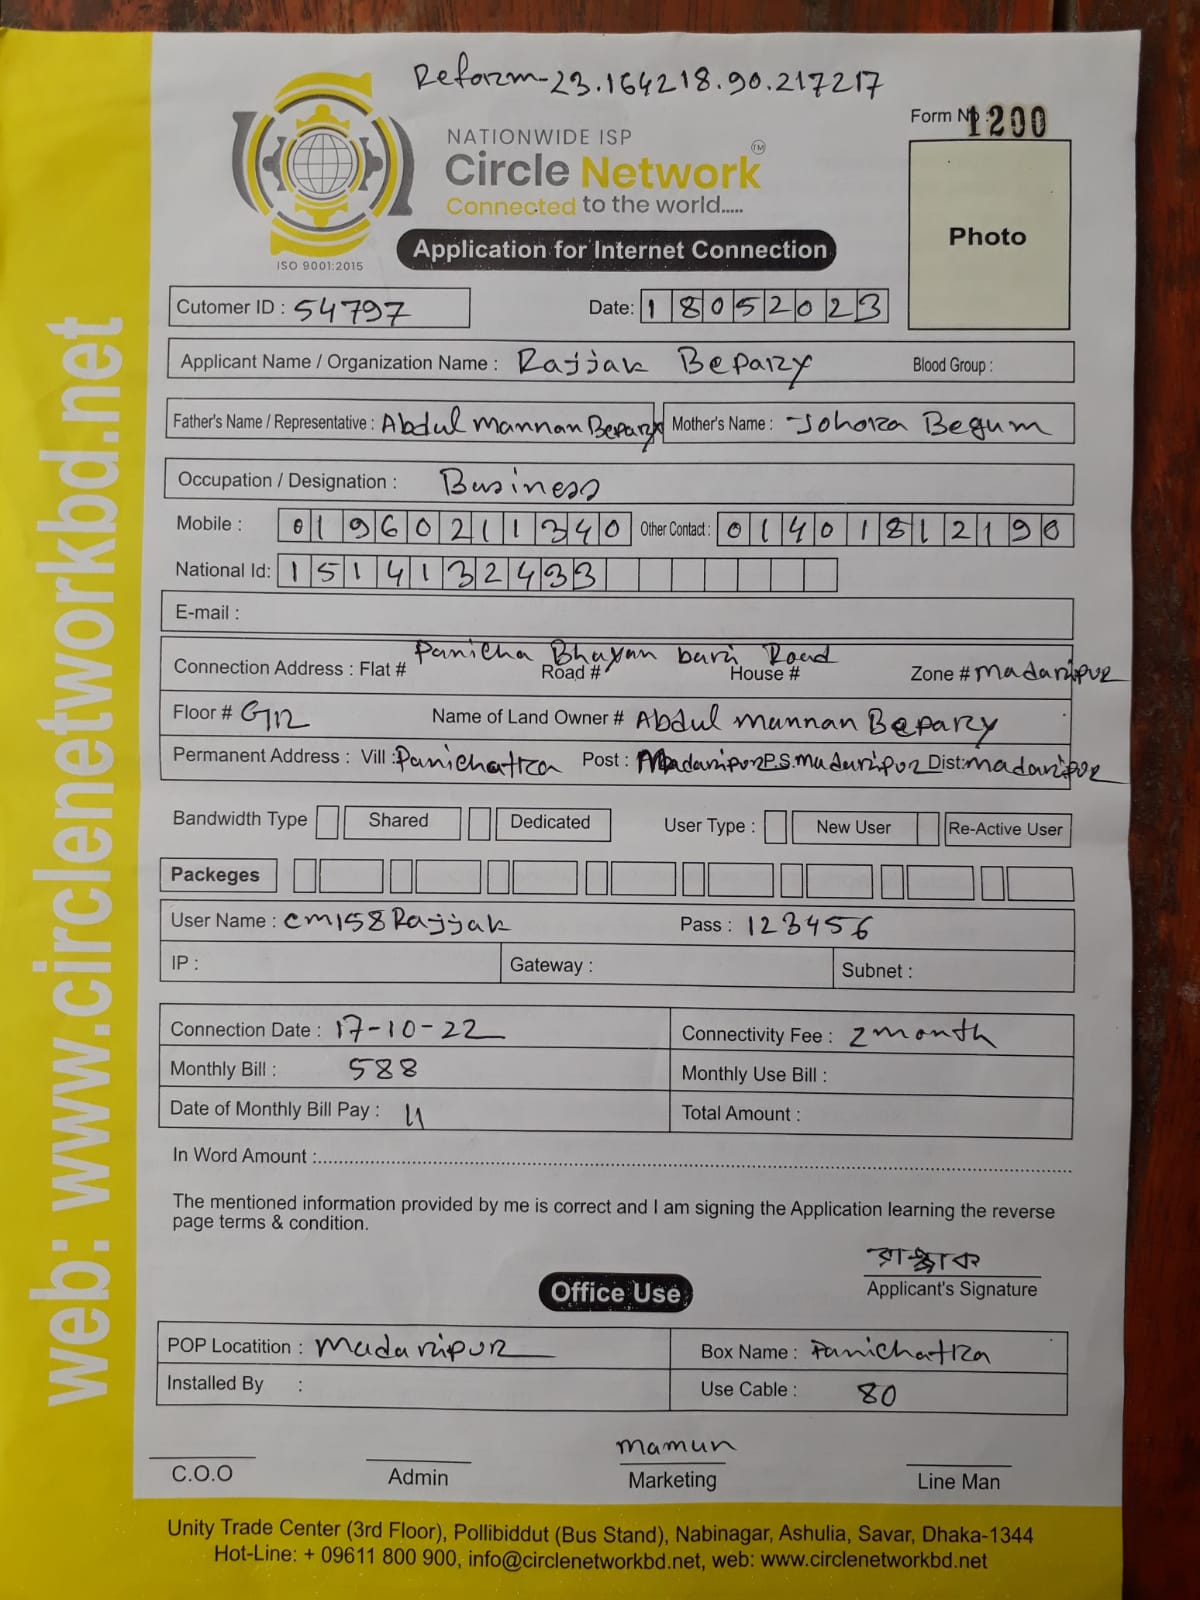 Reform-23.164218.90.217217
Form No : 1200
NATIONWIDE ISP
Circle Network TM
Connected to the world.....
ISO 9001:2015
Application for Internet Connection
Photo
Cutomer ID : 54797 Date: 18052023
Applicant Name / Organization Name : Rajjak Bepary Blood Group :
Father's Name / Representative : Abdul Mannan Bepary Mother's Name : Johora Begum
Occupation / Designation : Business
Mobile : 01960211340 Other Contact : 01401812190
National Id: 1514132433
E-mail :
Panicha Bhuyan bari Road
Connection Address : Flat # Road # House # Zone # Madaripur
Floor # G12 Name of Land Owner # Abdul Mannan Bepary
Permanent Address : Vill : Panichatra Post : Madaripur P.S. Madaripur Dist: Madaripur
Bandwidth Type Shared Dedicated User Type : New User Re-Active User
Packeges
User Name : cm158Rajjak Pass : 123456
IP : Gateway : Subnet :
Connection Date : 17-10-22 Connectivity Fee : 2 month
Monthly Bill : 588 Monthly Use Bill :
Date of Monthly Bill Pay : 11 Total Amount :
In Word Amount :
The mentioned information provided by me is correct and I am signing the Application learning the reverse
page terms & condition.
রাজ্জাক
Applicant's Signature
Office Use
POP Locatition : Madaripur Box Name : Panichatra
Installed By : Use Cable : 80
mamun
C.O.O Admin Marketing Line Man
Unity Trade Center (3rd Floor), Pollibiddut (Bus Stand), Nabinagar, Ashulia, Savar, Dhaka-1344
Hot-Line: + 09611 800 900, info@circlenetworkbd.net, web: www.circlenetworkbd.net
web: www.circlenetworkbd.net